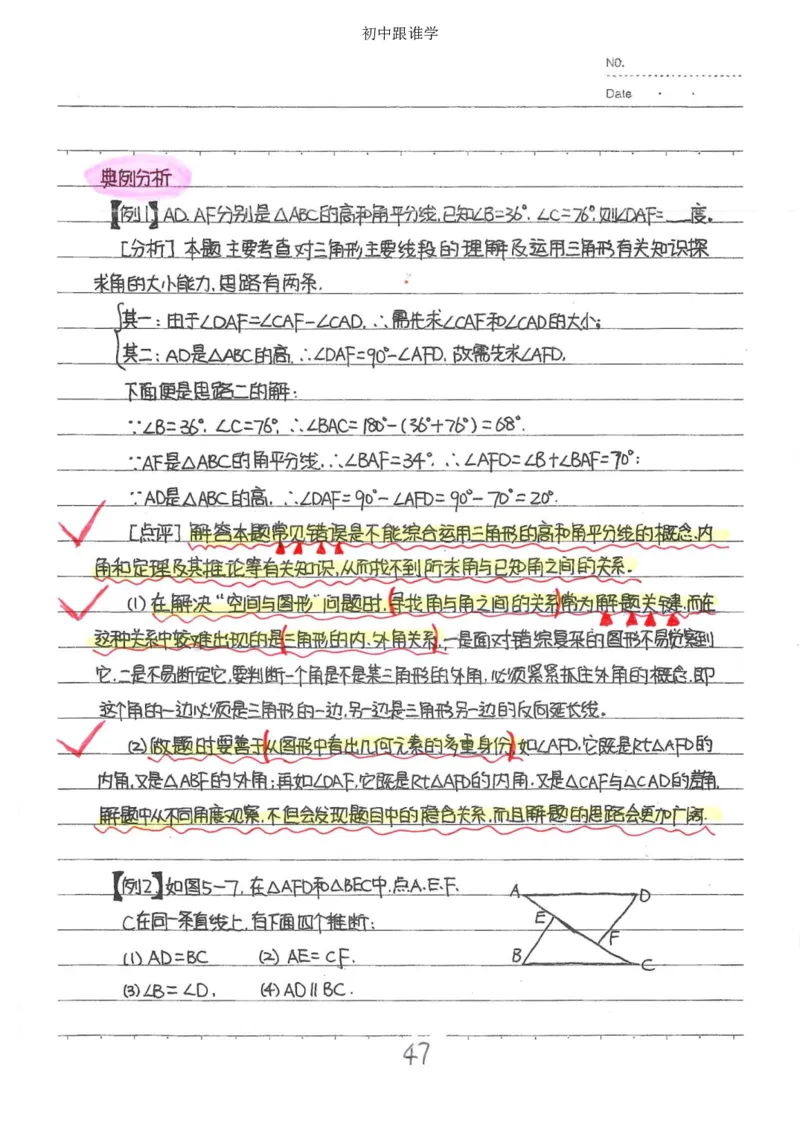 初中跟谁学
NO.
Date · ·
典例分析
【例1】AD、AF分别是△ABC的高和角平分线,已知∠B=36°,∠C=76°,则∠DAF=___度。
[分析]本题主要考查对三角形主要线段的理解及运用三角形有关知识探
求角的大小能力,思路有两条.
其一:由于∠DAF=∠CAF-∠CAD,∴需先求∠CAF和∠CAD的大小;
其二:AD是△ABC的高,∴∠DAF=90°-∠AFD,故需先求∠AFD,
下面便是思路二的解:
∵∠B=36°,∠C=76°,∴∠BAC=180°-(36°+76°)=68°.
∵AF是△ABC的角平分线,∴∠BAF=34°,∴∠AFD=∠B+∠BAF=70°;
∵AD是△ABC的高,∴∠DAF=90°-∠AFD=90°-70°=20°.
[点评]解答本题常见错误是不能综合运用三角形的高和角平分线的概念、内
角和定理及其推论等有关知识,从而找不到所求角与已知角之间的关系。
(1)在解决“空间与图形”问题时,寻找角与角之间的关系常为解题关键,而在
这种关系中较难出现的是三角形的内、外角关系,一是面对错综复杂的图形不易觉察到
它,二是不易断定它,要判断一个角是不是某三角形的外角,必须紧紧抓住外角的概念,即
这个角的一边必须是三角形的一边,另一边是三角形另一边的反向延长线。
(2)做题时要善于从图形中看出几何元素的多重身份,如∠AFD,它既是Rt△AFD的
内角,又是△ABF的外角;再如∠DAF,它既是Rt△AFD的内角,又是△CAF与△CAD的差角,
解题中从不同角度观察,不但会发现题目中的隐含关系,而且解题的思路会更加广阔.
【例2】如图5-7,在△AFD和△BEC中,点A、E、F、
C在同一条直线上,有下面四个推断:
(1)AD=BC (2)AE=CF.
(3)∠B=∠D, (4)AD∥BC.
A D
E
F
B C
47